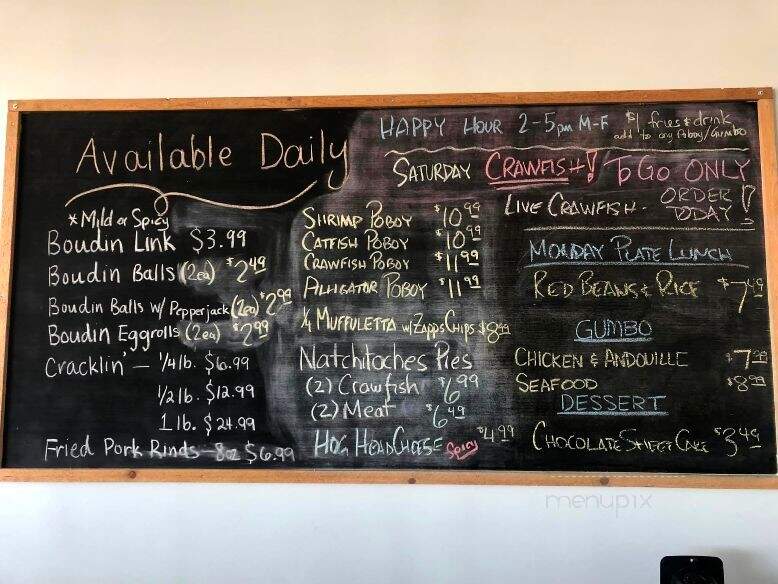 Available Daily
*Mild or Spicy
Boudin Link $3.99
Boudin Balls (2ea) $2.49
Boudin Balls w/ Pepperjack (2ea) $2.99
Boudin Eggrolls (2ea) $2.99
Cracklin' — 1/4 lb. $6.99
1/2 lb. $12.99
1 lb. $24.99
Fried Pork Rinds - 8oz $6.99
SHRIMP POBOY $10.99
CATFISH POBOY $10.99
CRAWFISH POBOY $11.99
ALLIGATOR POBOY $11.99
1/4 MUFFULETTA w/ZAPPS CHIPS $8.99
Natchitoches Pies
(2) Crawfish $6.99
(2) Meat $6.49
HOG HEAD CHEESE Spicy $4.99
HAPPY HOUR 2-5pm M-F $1 fries & drink
add to any Poboy/Gumbo
SATURDAY CRAWFISH! TO GO ONLY
LIVE CRAWFISH - ORDER TODAY!
MONDAY PLATE LUNCH
RED BEANS & RICE $7.49
GUMBO
CHICKEN & ANDOUILLE $7.99
SEAFOOD $8.99
DESSERT
CHOCOLATE SHEET CAKE $3.49
menupix